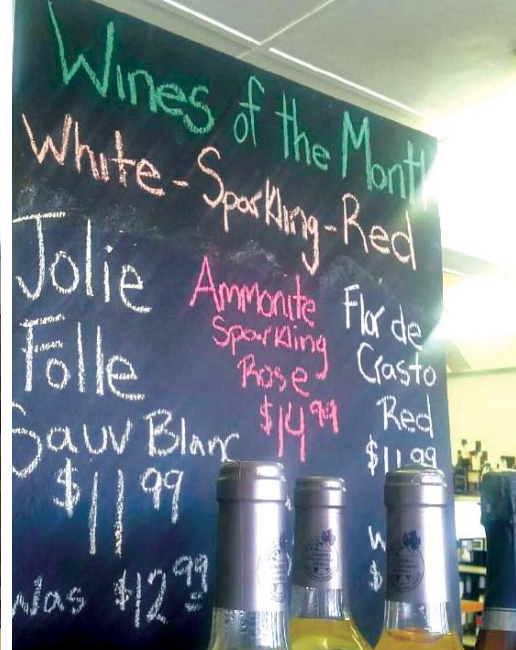 Wines of the Month
White-Sparkling-Red
Jolie
Folle
Sauv Blanc
$11 99
Was $12 99
Ammonite
Sparkling
Rose
$14 99
Flor de
Crasto
Red
$11 99
W
$